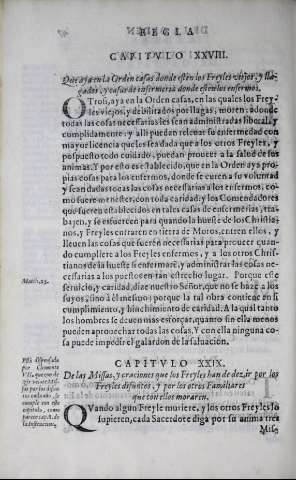 REGLA
CAPITVLO XXVIII.
Que aya en la Orden casas donde estèn los Freyles viejos, y lla-
gados, y casas de enfermeria donde estèn los enfermos.
OTrosi, aya en la Orden casas, en las quales los Frey-
les viejos, y debilitados por llagas, moren: adonde
todas las cosas necessarias les sean administradas liberal, y
cumplidamente: y alli puedan relevar su enfermedad con
mayor licencia que les sea dada que a los otros Freyles, y
pospuesto todo cuidado, puedan proveer a la salud de sus
animas. Y por esto es establecido, que en la Orden aya pro-
pias casas para los enfermos, donde se curen a su voluntad
y sean dadas todas las cosas necessarias a los enfermos, co-
mo fuere menester, con toda caridad: y los Comendadores
que fueren establecidos en tales casas de enfermerias, tra-
bajen, y se esfuercen para quando la hueste de los Christia-
nos, y Freyles entraren en tierra de Moros, entren ellos, y
lleven las cosas que fueren necessarias para proveer quan-
do cumpliere a los Freyles enfermos, y a los otros Chris-
tianos de la hueste si enfermarẽ, y administrar las cosas ne-
cessarias a los puestos en tan estrecho lugar. Porque este
Matth. 25.
servicio, y caridad, dize nuestro Señor, que no se haze a los
suyos, sino à el mesmo: porque la tal obra contiene en si
cumplimiento, y hinchimiento de caridad. A la qual tanto
los hombres se deven mas esforçar, quanto sin ella menos
pueden aprovechar todas las cosas. Y con ella ninguna co-
sa puede impedir el galardon de la salvacion.
CAPITVLO XXIX.
De las Missas, y oraciones que los Freyles han de dezir por los
Freyles difuntos, y por los otros Familiares
que con ellos moraren.
Clemente
VII. que con de-
zir
cumple con este
capitulo, como
parece
QVando algun Freyle muriere, y los otros Freyles lo
supieren, cada Sacerdote diga por su anima tres
Mis-